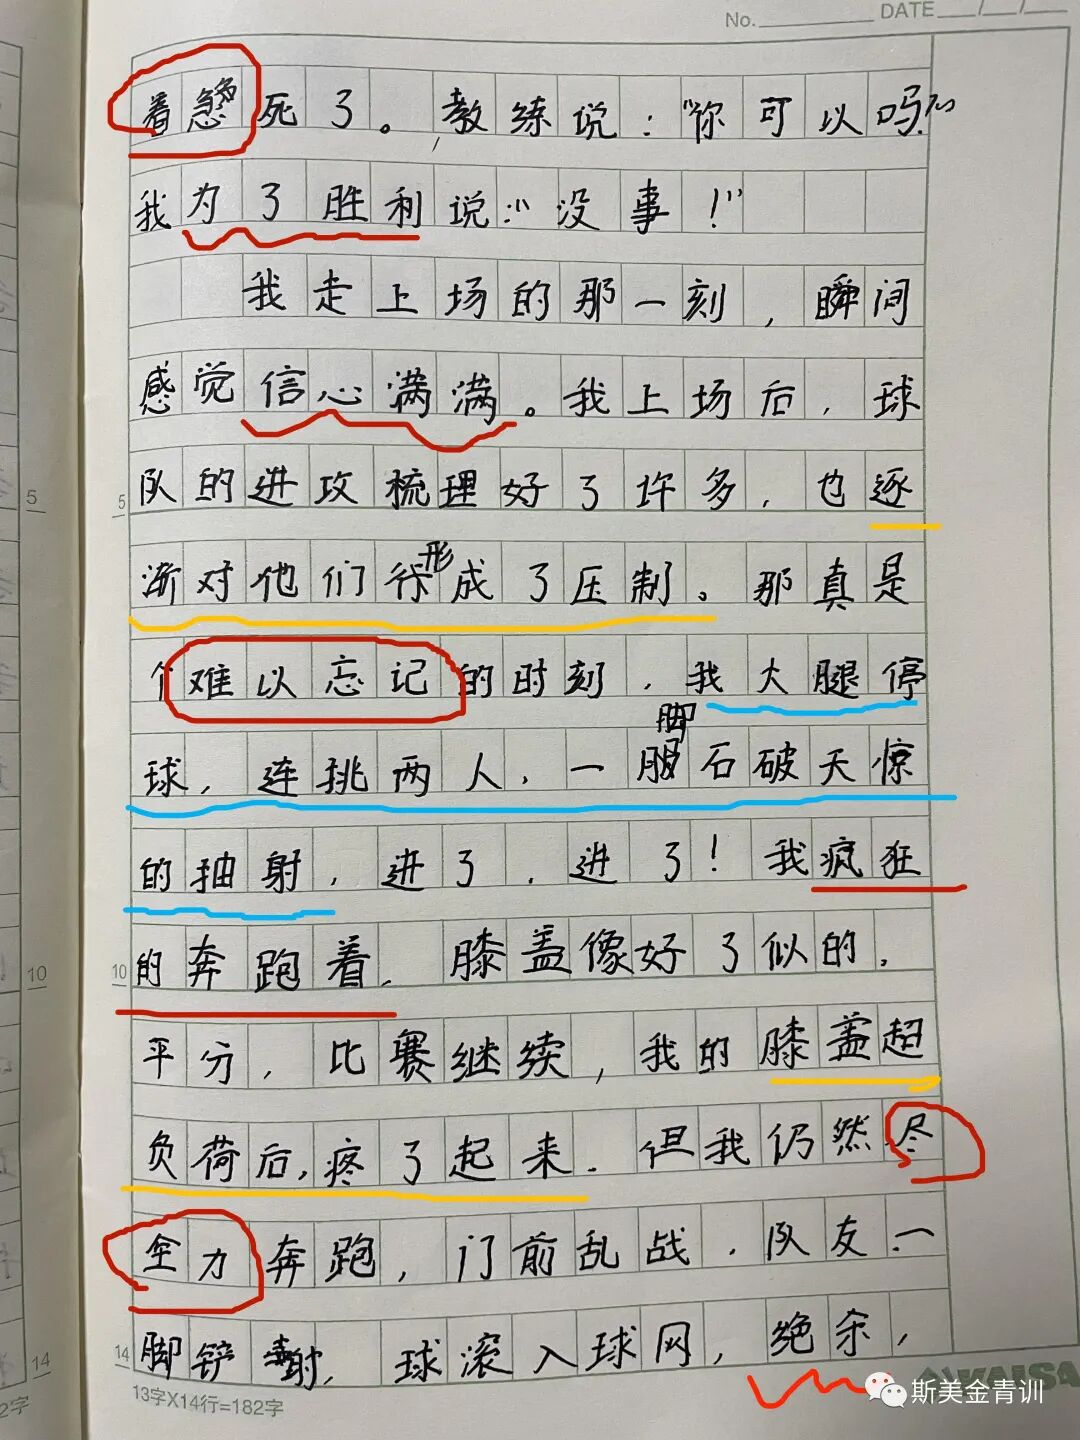 No. DATE / /
着急死了。教练说：“你可以吗？”
我为了胜利说：“没事！”
我走上场的那一刻，瞬间
感觉信心满满。我上场后，球
队的进攻梳理好了许多，也逐
渐对他们形成了压制。那真是
个难以忘记的时刻，我大腿停
球，连挑两人，一脚石破天惊
的抽射，进了，进了！我疯狂
的奔跑着，膝盖像好了似的。
平分，比赛继续，我的膝盖超
负荷后，疼了起来。但我仍然尽
全力奔跑，门前乱战，队友一
脚铲射，球滚入球网，绝杀，
5
10
14
5
10
14
13字X14行=182字
2字
KAISA
斯美金青训